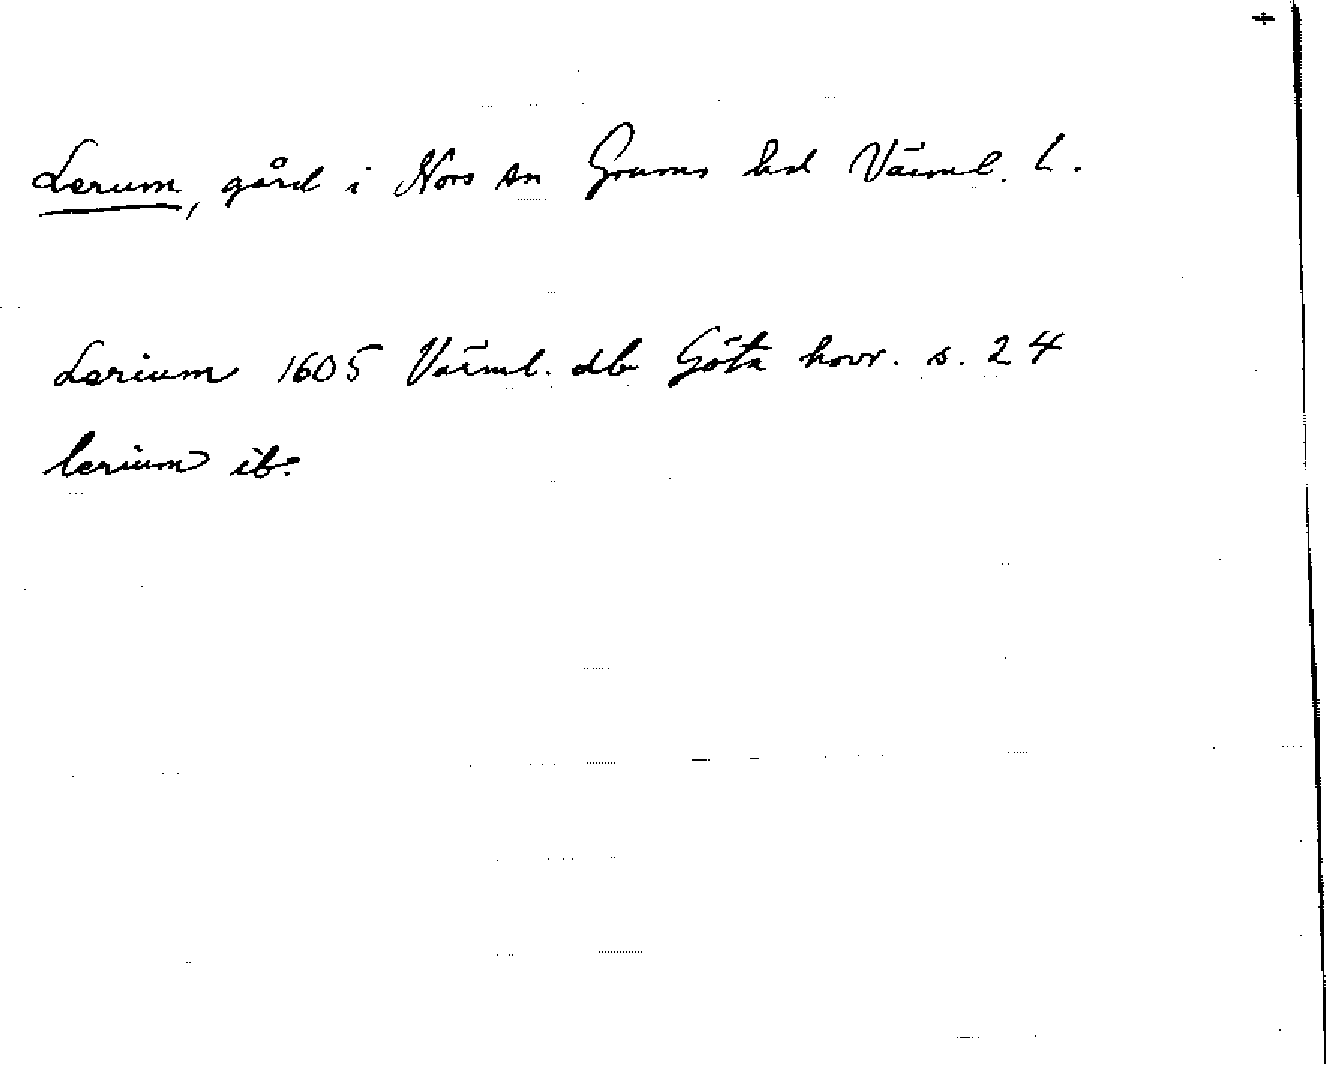 Lerum, gård i Nors sn Grums hd Värml. l.
Lerium 1605 Värml. db Göta hovr. s. 24
lerium ib.